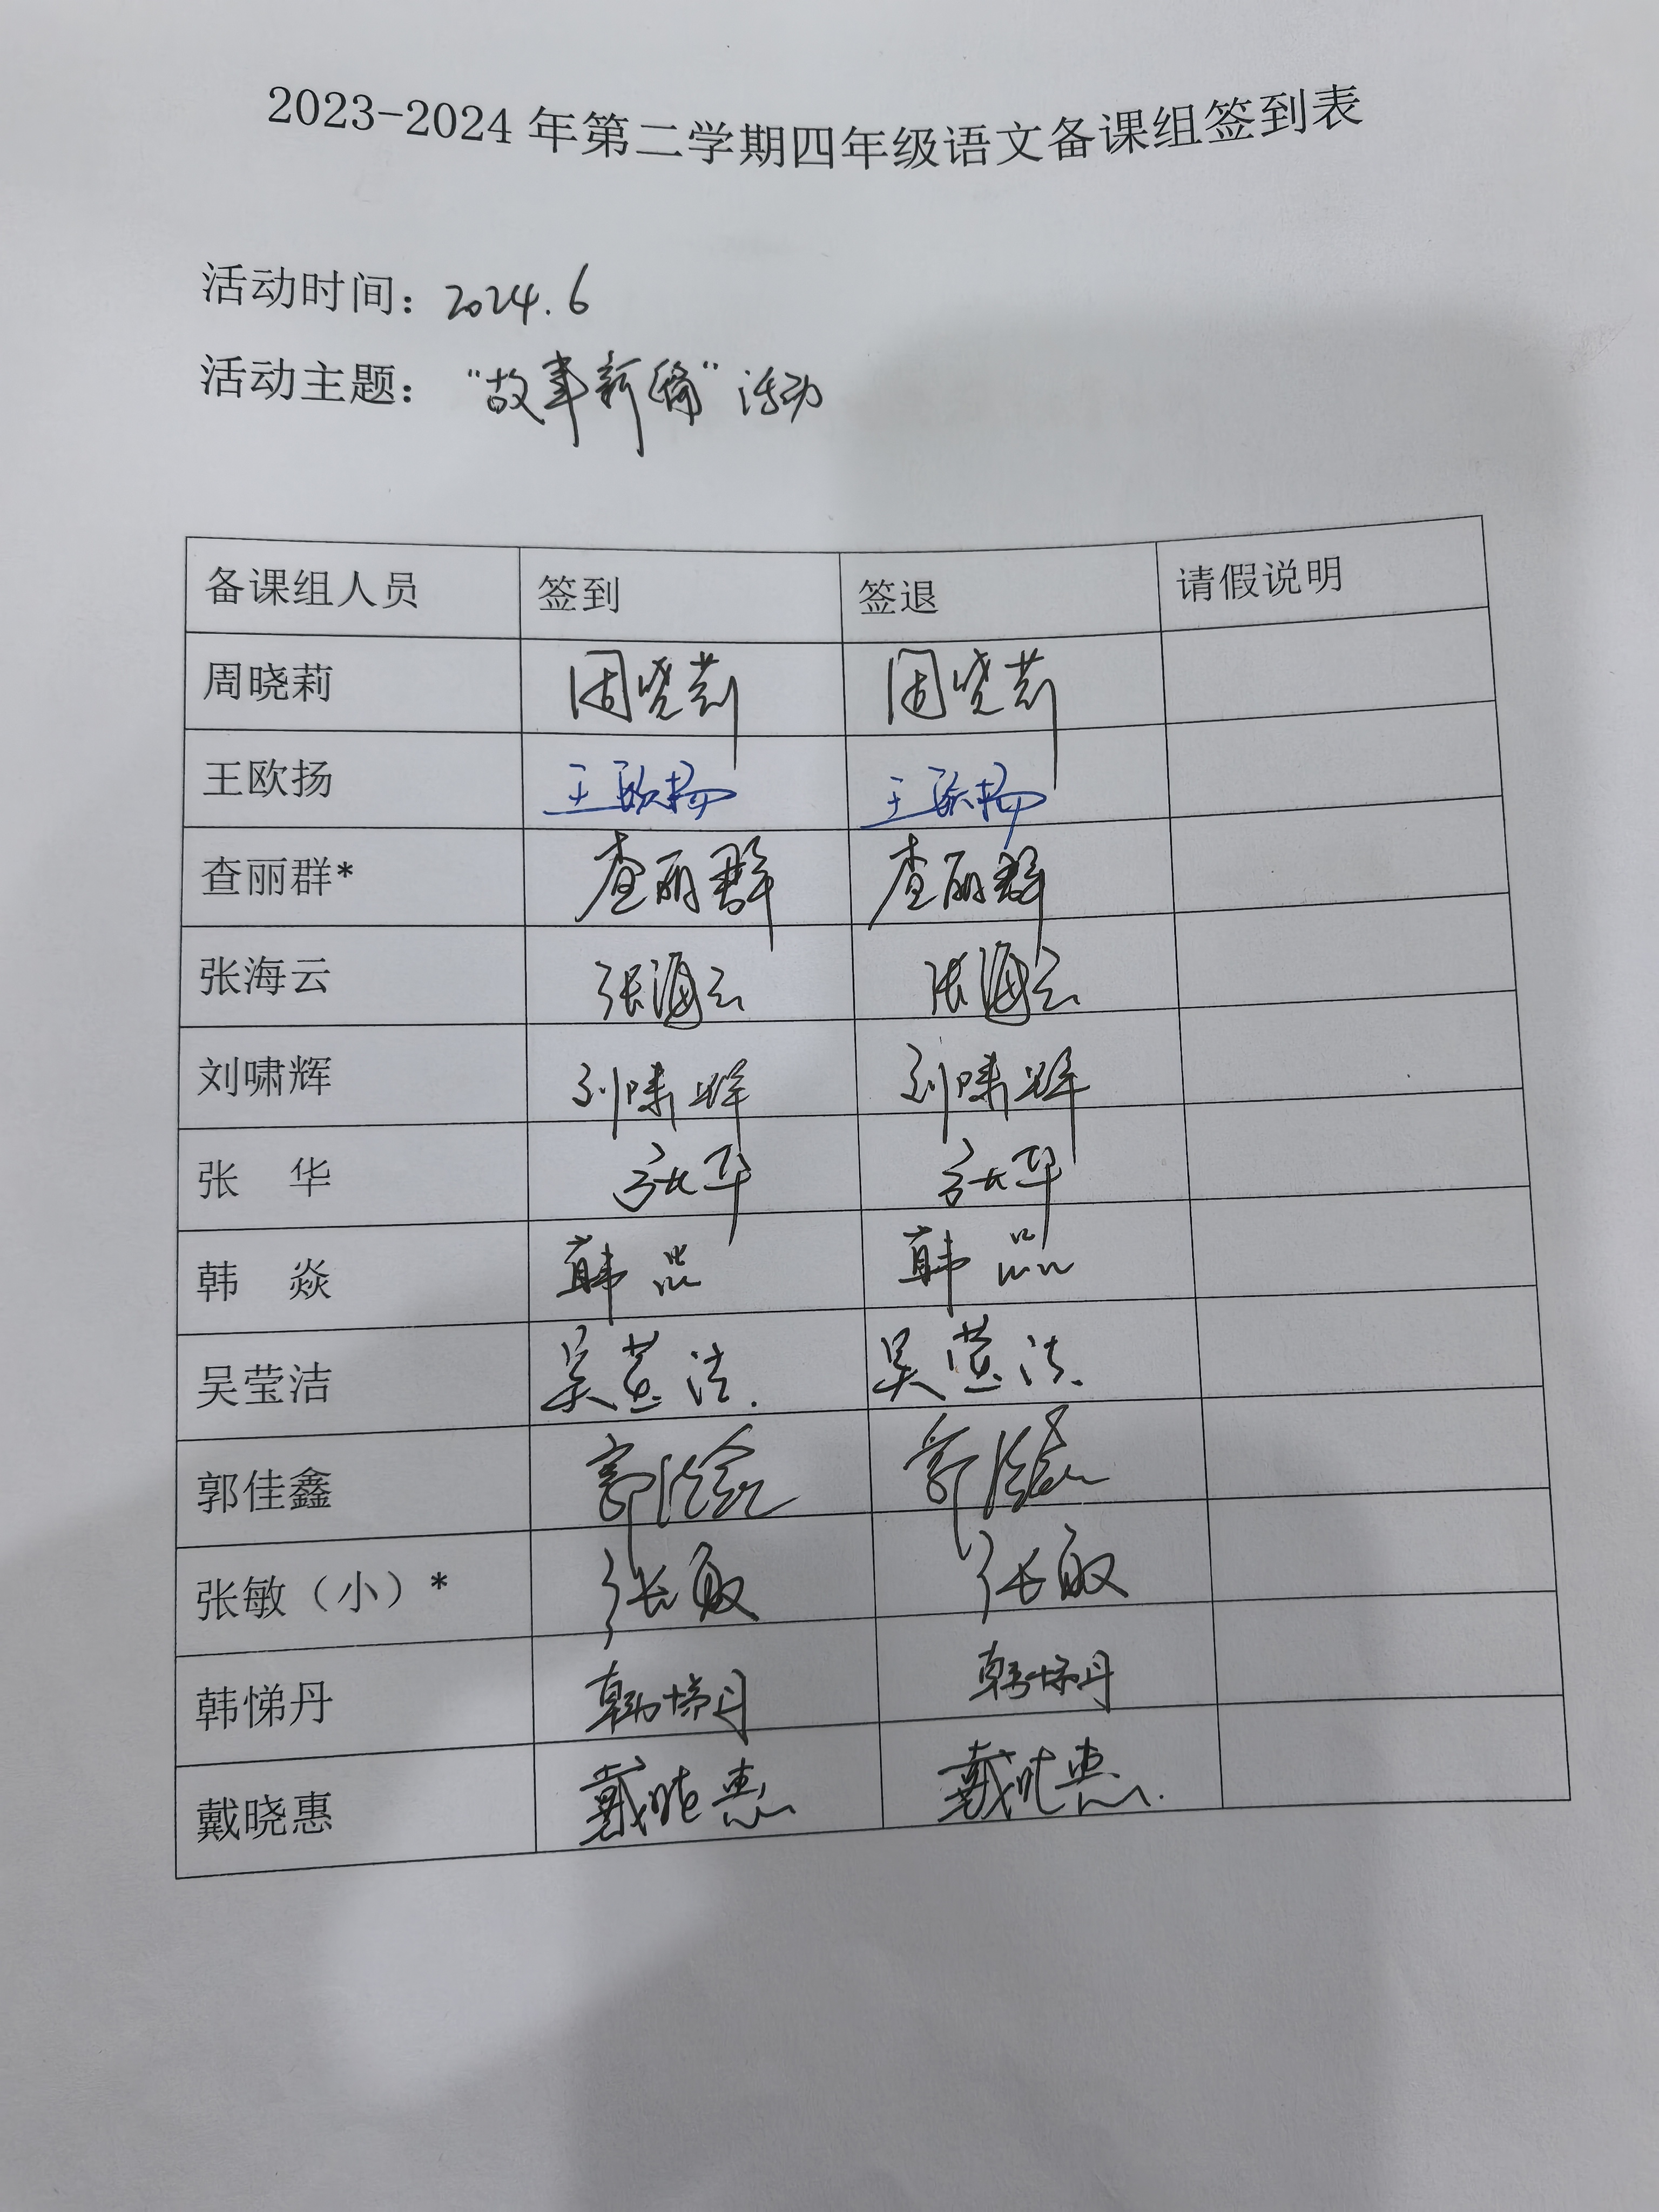 2023-2024 年第二学期四年级语文备课组签到表
活动时间：2024.6
活动主题：“故事新编”活动
备课组人员 签到 签退 请假说明
周晓莉 周晓莉 周晓莉
王欧扬 王欧扬 王欧扬
查丽群* 查丽群 查丽群
张海云 张海云 张海云
刘啸辉 刘啸辉 刘啸辉
张　华 张华 张华
韩　焱 韩焱 韩焱
吴莹洁 吴莹洁. 吴莹洁.
郭佳鑫 郭佳鑫 郭佳鑫
张敏（小）* 张敏 张敏
韩悌丹 韩悌丹 韩悌丹
戴晓惠 戴晓惠 戴晓惠.